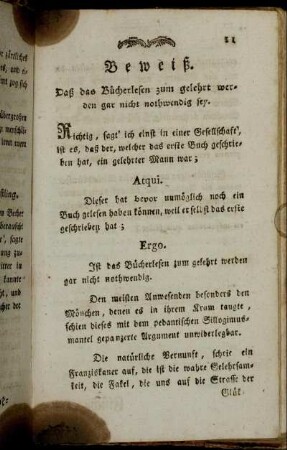 11
Beweiß.
Daß das Bücherlesen zum gelehrt wer-
den gar nicht nothwendig sey.
Richtig, sagt' ich einst in einer Gesellschaft',
ist es, daß der, welcher das erste Buch geschrie-
ben hat, ein gelehrter Mann war;
Atqui.
Dieser hat bevor unmöglich noch ein
Buch gelesen haben können, weil er selbst das erste
geschrieben hat;
Ergo.
Ist das Bücherlesen zum gelehrt werden
gar nicht nothwendig.
Den meisten Anwesenden besonders den
Mönchen, denen es in ihrem Kram taugte,
schien dieses mit dem pedantischen Sillogimus-
mantel gepanzerte Argument unwiderlegbar.
Die natürliche Vernunft, schrie ein
Franziskaner auf, die ist die wahre Gelehrsam-
keit, die Fakel, die uns auf die Strasse der
Glük-